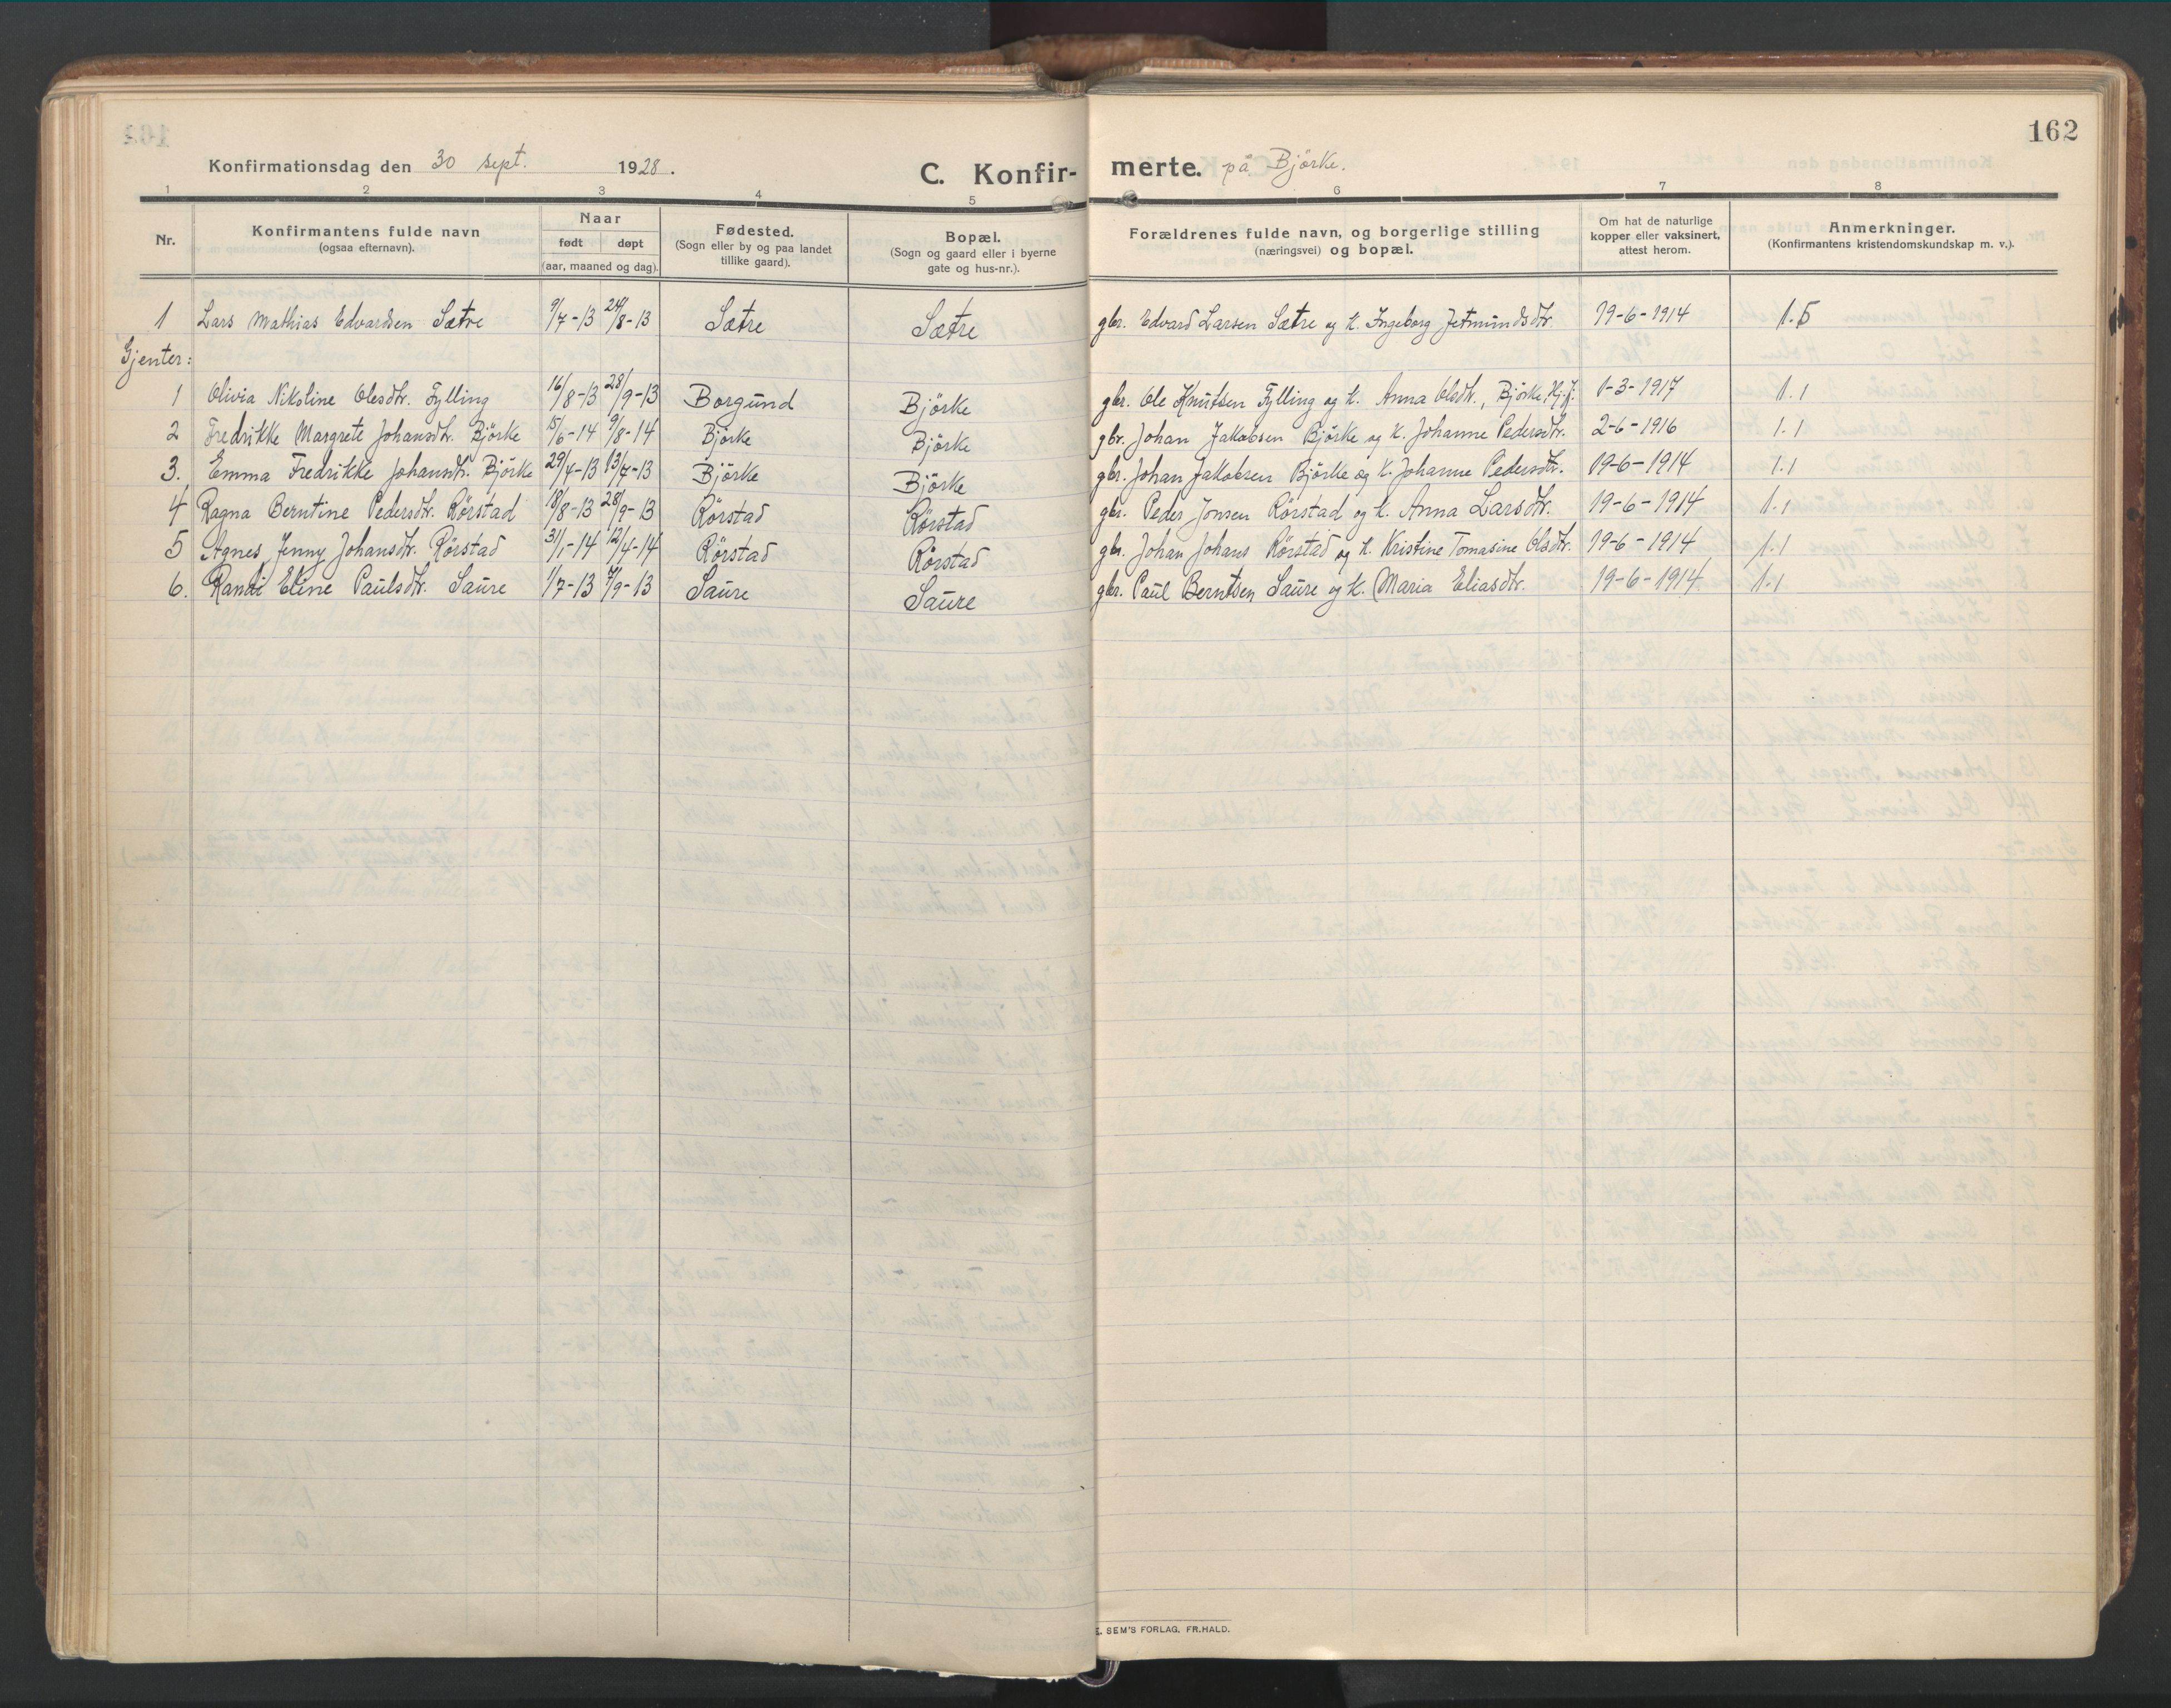 162
Konfirmationsdag den 30 sept. 1928.
C. Konfir-merte. på Björke.
1 2 3 4 5 6 7 8
Nr.
Konfirmantens fulde navn
(ogsaa efternavn).
Naar
født døpt
(aar, maaned og dag).
Fødested.
(Sogn eller by og paa landet
tillike gaard).
Bopæl.
(Sogn og gaard eller i byerne
gate og hus-nr.).
Forældrenes fulde navn, og borgerlige stilling
(næringsvei) og bopæl.
Om hat de naturlige
kopper eller vaksinert,
attest herom.
Anmerkninger.
(Konfirmantens kristendomskundskap m. v.).
1 Lars Mathias Edvardsen Sætre 9/7-13 24/8-13 Sætre Sætre gbr. Edvard Larsen Sætre og k. Ingeborg Jetmundsdtr. 19-6-1914 1.5
Gjenter:
1 Olivia Nikoline Olesdtr. Fylling 16/8-13 28/9-13 Borgund Björke gbr. Ole Knutsen Fylling og k. Anna Olsdtr., Björke, Hj.f. 1-3-1917 1.1
2 Fredrikke Margrete Johansdtr. Björke 15/6-14 9/8-14 Björke Björke gbr. Johan Jakobsen Björke og k. Johanne Pedersdtr. 2-6-1916 1.1
3. Emma Fredrikke Johansdtr. Björke 29/4-13 13/7-13 Björke Björke gbr. Johan Jakobsen Björke og k. Johanne Pedersdtr. 19-6-1914 1.1
4 Ragna Berntine Pedersdtr. Rörstad 18/8-13 28/9-13 Rörstad Rörstad gbr. Peder Jonsen Rörstad og k. Anna Larsdtr. 19-6-1914 1.1
5 Agnes Jenny Johansdtr. Rörstad 31/1-14 12/4-14 Rörstad Rörstad gbr. Johan Johans Rörstad og k. Kristine Tomasine Olsdtr. 19-6-1914 1.1
6. Randi Eline Paulsdtr. Saure 1/7-13 7/9-13 Saure Saure gbr. Paul Berntsen Saure og k. Maria Eliasdtr. 19-6-1914 1.1
SEM'S FORLAG. FR.HALD.